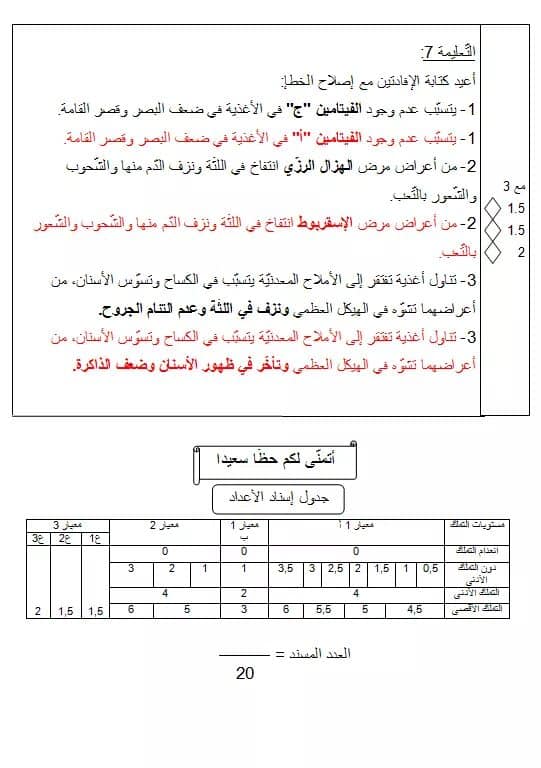 التّعليمة 7:
أعيد كتابة الإفادتين مع إصلاح الخطإ:
1- يتسبّب عدم وجود الفيتامين "ج" في الأغذية في ضعف البصر وقصر القامة.
1- يتسبّب عدم وجود الفيتامين "أ" في الأغذية في ضعف البصر وقصر القامة.
2- من أعراض مرض الهزال الرزّي انتفاخ في اللثّة ونزف الدّم منها والشّحوب
والشّعور بالتّعب.
2- من أعراض مرض الإسقربوط انتفاخ في اللثّة ونزف الدّم منها والشّحوب والشّعور
بالتّعب.
3- تناول أغذية تفتقر إلى الأملاح المعدنيّة يتسبّب في الكساح وتسوّس الأسنان، من
أعراضهما تشوّه في الهيكل العظمي ونزف في اللثة وعدم التئام الجروح.
3- تناول أغذية تفتقر إلى الأملاح المعدنيّة يتسبّب في الكساح وتسوّس الأسنان، من
أعراضهما تشوّه في الهيكل العظمي وتأخّر في ظهور الأسنان وضعف الذاكرة.
مع 3
1.5
1.5
2
أتمنّى لكم حظّا سعيدا
جدول إسناد الأعداد
مستويات التملك معيار 1 أ معيار 1 ب معيار 2 معيار 3
ع1 ع2 ع3
انعدام التملك 0 0 0
دون التملك الأدنى 0,5 1 1,5 2 2,5 3 3,5 1 1 2 3
التملك الأدنى 4 2 4
التملك الأقصى 4,5 5 5,5 6 3 5 6 1,5 1,5 2
العدد المسند = ـــــــ
20